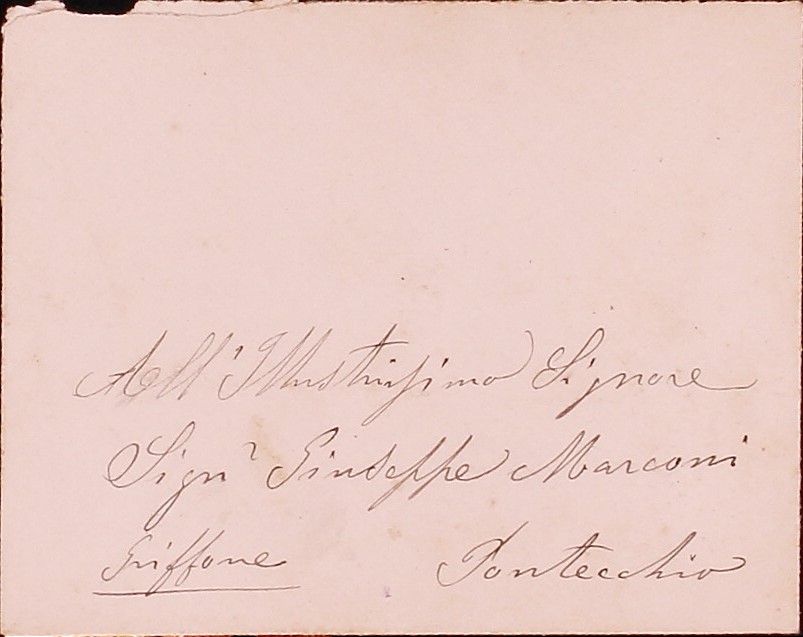 All'Illustrissimo Signore
Sign.r Giuseppe Marconi
Griffone Pontecchio